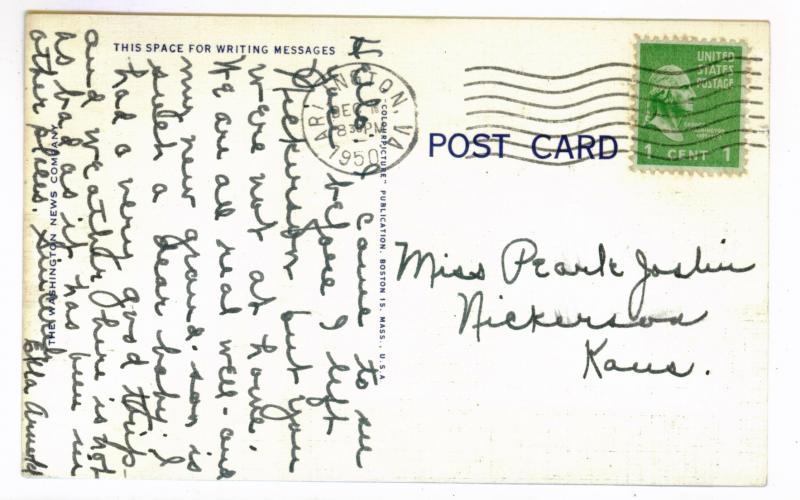 THIS SPACE FOR WRITING MESSAGES
Hello! I came to see
you before I left
Nickerson but you
were not at home.
We are all real well - and
my new grand-son is
such a dear baby. I
had a very good trip
and weather here is not
as bad as it has been in
other places. Sincerely
Ella Arnold
THE WASHINGTON NEWS COMPANY
"COLOURPICTURE" PUBLICATION, BOSTON 15, MASS., U.S.A
ARLINGTON, VA
DEC
8 30 PM
1950
POST CARD
UNITED
STATES
POSTAGE
GEORGE
WASHINGTON
1 CENT 1
Miss Pearle Joslin
Nickerson
Kans.